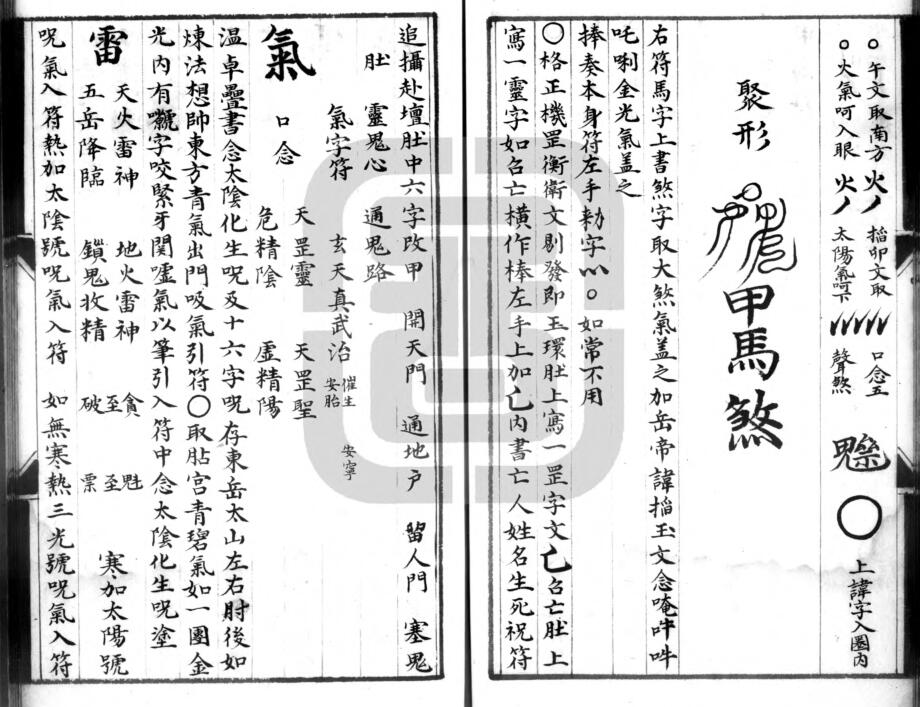 午文取南方 火 掐卯文取 口念五
火氣呵入眼 火 太陽氣呵下 聲煞
上諱字入圈內
聚形 甲馬煞
右符馬字上書煞字取大煞氣蓋之加岳帝諱掐玉文念唵吽吽
吒唎金光氣蓋之
捧奏本身符左手勑字 如常不用
〇格正機罡衡衛文剔發即玉環肚上寫一罡字文 召亡肚上
寫一靈字如召亡橫作棒左手上加 內書亡人姓名生死祝符
追攝赴壇肚中六字改甲 開天門 通地戶 留人門 塞鬼
肚 靈鬼心 通鬼路
氣字符 玄天真武治 催生 安胎 安寧
氣 口念 天罡靈 天罡聖
危精陰 虛精陽
温卓疊書念太陰化生呪及十六字呪存東岳太山左右肘後如
煉法想帥東方青氣出門吸氣引符〇取胋宮青碧氣如一團金
光內有 字咬緊牙関噓氣以筆引入符中念太陰化生呪塗
雷 天火雷神 地火雷神 貪至破 魁至票 寒加太陽號
五岳降臨 鎖鬼收精
呪氣入符熱加太陰號呪氣入符 如無寒熱三光號呪氣入符